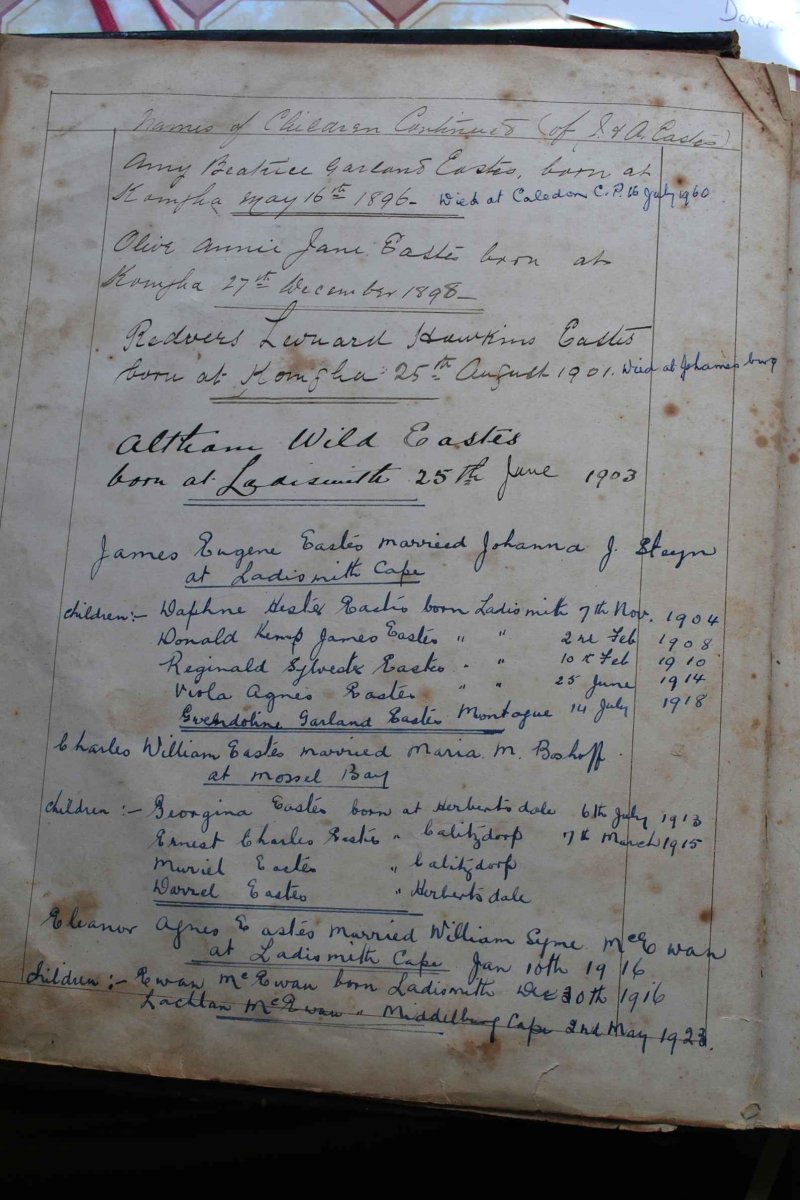 Doner
Names of Children Continued (of J. & A. Eastes)
Amy Beatrice Garland Eastes, born at
Komgha May 16th 1896 - Died at Caledon C.P. 16 July 1960
Olive Annie Jane Eastes born at
Komgha 27th December 1898 -
Redvers Leonard Hawkins Eastes
born at Komgha 25th August 1901. Died at Johannesburg
Altham Wild Eastes
born at Ladismith 25th June 1903
James Eugene Eastes married Johanna J. Steyn
at Ladismith Cape
Children:- Daphne Hester Eastes born Ladismith 7th Nov. 1904
Donald Kemp James Eastes " " 2nd Feb 1908
Reginald Sylvester Eastes " " 10th Feb 1910
Viola Agnes Eastes " " 25 June 1914
Gwendoline Garland Eastes Montague 14 July 1918
Charles William Eastes married Maria M. Boshoff
at Mossel Bay
Children:- Georgina Eastes born at Herbertsdale 6th July 1913
Ernest Charles Eastes " Calitzdorp 7th March 1915
Muriel Eastes " Calitzdorp
Darrel Eastes " Herbertsdale
Eleanor Agnes Eastes married William Syme McEwan
at Ladismith Cape Jan 10th 1916
Children:- Ewan McEwan born Ladismith Dec 20th 1916
Lachlan McEwan " Middelburg Cape 2nd May 1923.